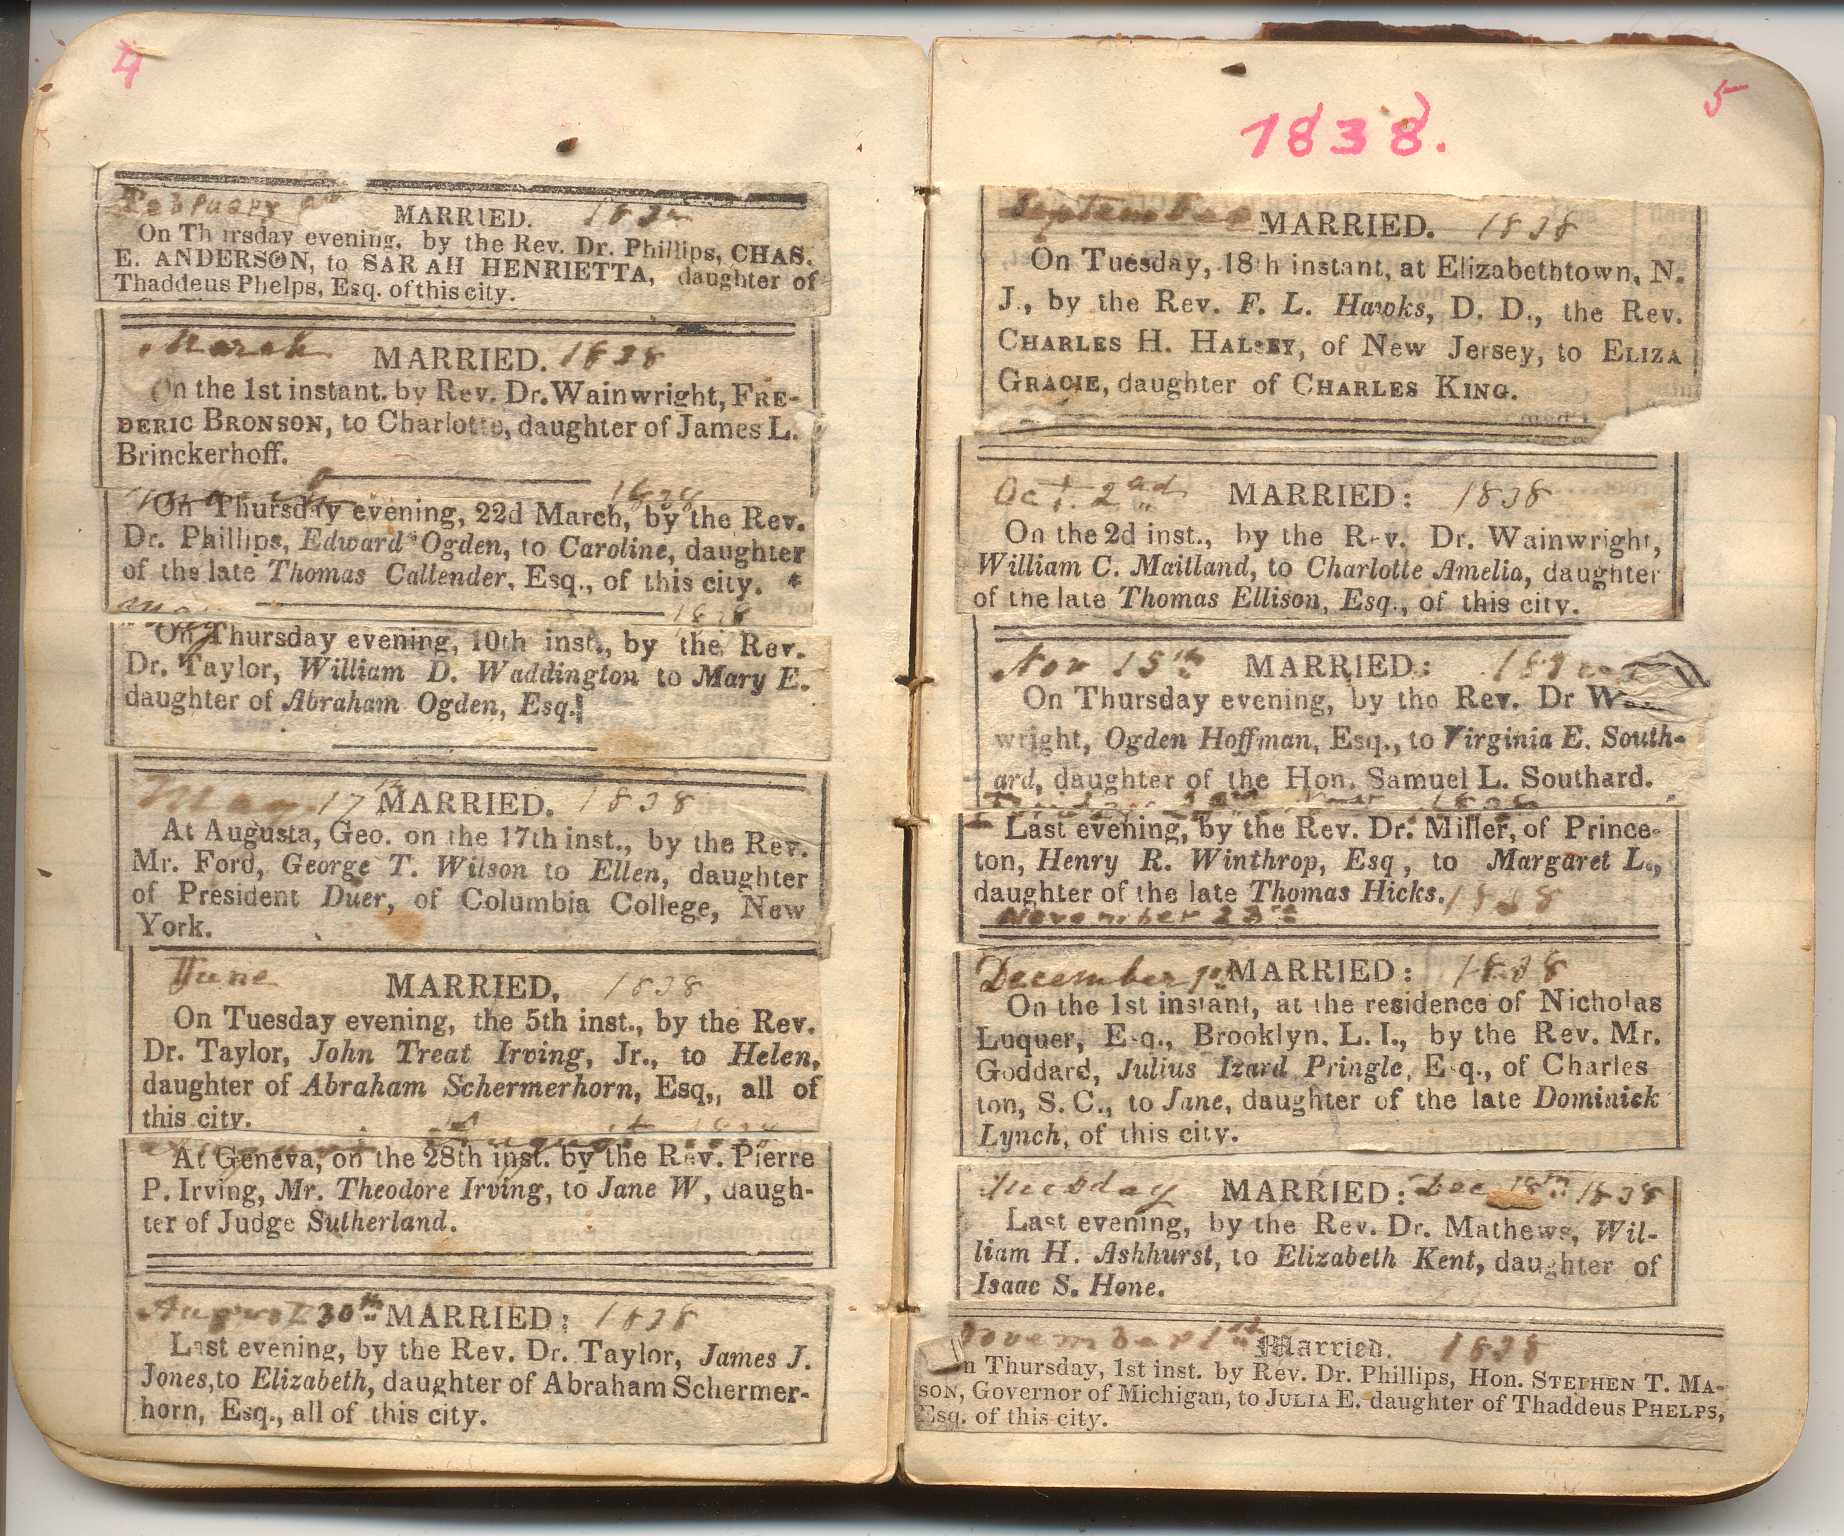 4
February 1838
MARRIED.
On Thursday evening, by the Rev. Dr. Phillips, CHAS.
E. ANDERSON, to SARAH HENRIETTA, daughter of
Thaddeus Phelps, Esq. of this city.
March 1838
MARRIED.
On the 1st instant. by Rev. Dr. Wainwright, FRE-
DERIC BRONSON, to Charlotte, daughter of James L.
Brinckerhoff.
1838
On Thursday evening, 22d March, by the Rev.
Dr. Phillips, Edward Ogden, to Caroline, daughter
of the late Thomas Callender, Esq., of this city. *
May 1838
On Thursday evening, 10th inst., by the Rev.
Dr. Taylor, William D. Waddington to Mary E.
daughter of Abraham Ogden, Esq.
May 17th 1838
MARRIED.
At Augusta, Geo. on the 17th inst., by the Rev.
Mr. Ford, George T. Wilson to Ellen, daughter
of President Duer, of Columbia College, New
York.
June 1838
MARRIED,
On Tuesday evening, the 5th inst., by the Rev.
Dr. Taylor, John Treat Irving, Jr., to Helen,
daughter of Abraham Schermerhorn, Esq,, all of
this city.
August 1838
At Geneva, on the 28th inst. by the Rev. Pierre
P. Irving, Mr. Theodore Irving, to Jane W, daugh-
ter of Judge Sutherland.
August 30th 1838
MARRIED:
Last evening, by the Rev. Dr. Taylor, James J.
Jones, to Elizabeth, daughter of Abraham Schermer-
horn, Esq., all of this city.
5
1838.
September 1838
MARRIED.
On Tuesday, 18th instant, at Elizabethtown, N.
J., by the Rev. F. L. Hawks, D. D., the Rev.
CHARLES H. HALSEY, of New Jersey, to ELIZA
GRACIE, daughter of CHARLES KING.
Oct. 2nd 1838
MARRIED:
On the 2d inst., by the Rev. Dr. Wainwright,
William C. Maitland, to Charlotte Amelia, daughter
of the late Thomas Ellison, Esq., of this city.
Nov 15th
MARRIED:
On Thursday evening, by the Rev. Dr
wright, Ogden Hoffman, Esq., to Virginia E. South-
ard, daughter of the Hon. Samuel L. Southard.
Last evening, by the Rev. Dr. Miller, of Prince-
ton, Henry R. Winthrop, Esq, to Margaret L.,
daughter of the late Thomas Hicks. 1838
November 23rd
December 1st 1838
MARRIED:
On the 1st instant, at the residence of Nicholas
Luquer, Esq., Brooklyn, L. I., by the Rev. Mr.
Goddard, Julius Izard Pringle, Esq., of Charles
ton, S. C., to Jane, daughter of the late Dominick
Lynch, of this city.
Tuesday MARRIED: Dec 18th 1838
Last evening, by the Rev. Dr. Mathews, Wil-
liam H. Ashhurst, to Elizabeth Kent, daughter of
Isaac S. Hone.
November 1st 1838
Married.
On Thursday, 1st inst. by Rev. Dr. Phillips, Hon. STEPHEN T. MA-
SON, Governor of Michigan, to JULIA E. daughter of Thaddeus PHELPS,
Esq. of this city.